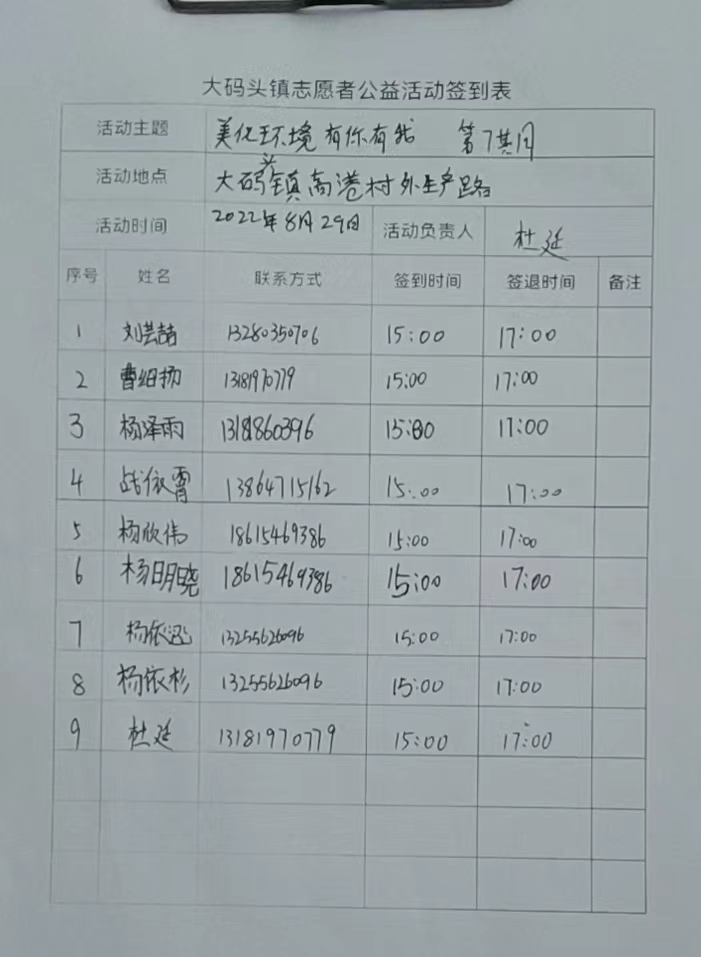 大码头镇志愿者公益活动签到表
活动主题 美化环境 有你有我 第7期
活动地点 大码头镇高港村外生产路
活动时间 2022年8月29日 活动负责人 杜廷
序号 姓名 联系方式 签到时间 签退时间 备注
1 刘芸喆 13280350706 15:00 17:00
2 曹绍扬 13181970779 15:00 17:00
3 杨泽雨 13181860396 15:00 17:00
4 战依霄 13864715162 15:00 17:00
5 杨欣伟 18615469386 15:00 17:00
6 杨明晓 18615469386 15:00 17:00
7 杨依 13255626096 15:00 17:00
8 杨依杉 13255626096 15:00 17:00
9 杜廷 13181970779 15:00 17:00